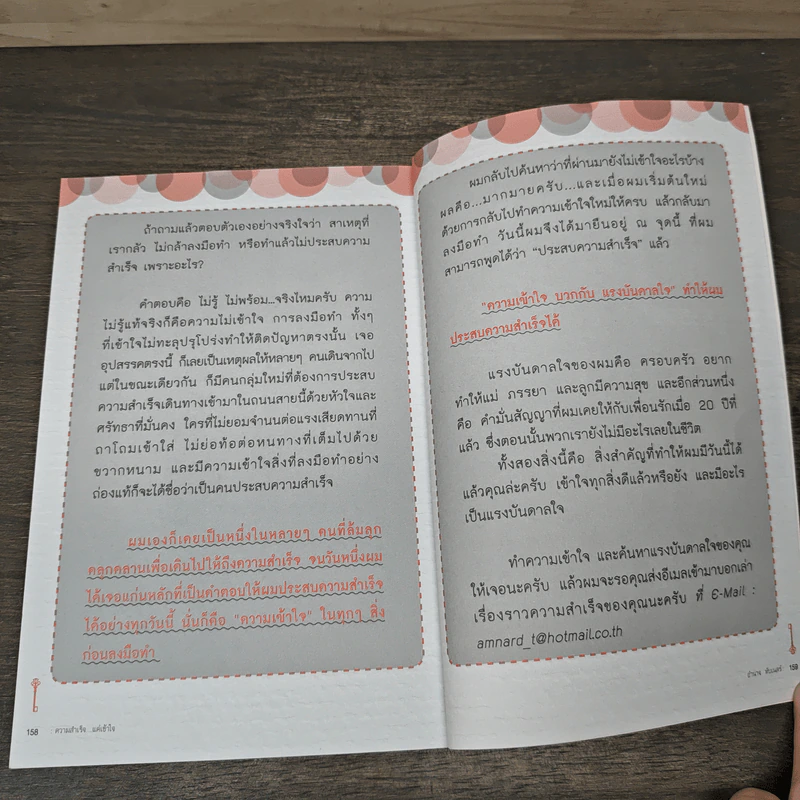 ถ้าถามแล้วตอบตัวเองอย่างจริงใจว่า สาเหตุที่
เรากลัว ไม่กล้าลงมือทำ หรือทำแล้วไม่ประสบความ
สำเร็จ เพราะอะไร?
คำตอบคือ ไม่รู้ ไม่พร้อม...จริงไหมครับ ความ
ไม่รู้แท้จริงก็คือความไม่เข้าใจ การลงมือทำ ทั้งๆ
ที่เข้าใจไม่ทะลุปรุโปร่งทำให้ติดปัญหาตรงนั้น เจอ
อุปสรรคตรงนี้ ก็เลยเป็นเหตุผลให้หลายๆ คนเดินจากไป
แต่ในขณะเดียวกัน ก็มีคนกลุ่มใหม่ที่ต้องการประสบ
ความสำเร็จเดินทางเข้ามาในถนนสายนี้ด้วยหัวใจและ
ศรัทธาที่มั่นคง ใครที่ไม่ยอมจำนนต่อแรงเสียดทานที่
ถาโถมเข้าใส่ ไม่ย่อท้อต่อหนทางที่เต็มไปด้วย
ขวากหนาม และมีความเข้าใจสิ่งที่ลงมือทำอย่าง
ถ่องแท้ก็จะได้ชื่อว่าเป็นคนประสบความสำเร็จ
ผมเองก็เคยเป็นหนึ่งในหลายๆ คนที่ล้มลุก
คลุกคลานเพื่อเดินไปให้ถึงความสำเร็จ จนวันหนึ่งผม
ได้เจอแก่นหลักที่เป็นคำตอบให้ผมประสบความสำเร็จ
ได้อย่างทุกวันนี้ นั่นก็คือ "ความเข้าใจ" ในทุกๆ สิ่ง
ก่อนลงมือทำ
158 ความสำเร็จ...แค่เข้าใจ
ผมกลับไปค้นหาว่าที่ผ่านมายังไม่เข้าใจอะไรบ้าง
ผลคือ...มากมายครับ...และเมื่อผมเริ่มต้นใหม่
ด้วยการกลับไปทำความเข้าใจใหม่ให้ครบ แล้วกลับมา
ลงมือทำ วันนี้ผมจึงได้มายืนอยู่ ณ จุดนี้ ที่ผม
สามารถพูดได้ว่า "ประสบความสำเร็จ" แล้ว
"ความเข้าใจ บวกกับ แรงบันดาลใจ" ทำให้ผม
ประสบความสำเร็จได้
แรงบันดาลใจของผมคือ ครอบครัว อยาก
ทำให้แม่ ภรรยา และลูกมีความสุข และอีกส่วนหนึ่ง
คือ คำมั่นสัญญาที่ผมเคยให้กับเพื่อนรักเมื่อ 20 ปีที่
แล้ว ซึ่งตอนนั้นพวกเรายังไม่มีอะไรเลยในชีวิต
ทั้งสองสิ่งนี้คือ สิ่งสำคัญที่ทำให้ผมมีวันนี้ได้
แล้วคุณล่ะครับ เข้าใจทุกสิ่งดีแล้วหรือยัง และมีอะไร
เป็นแรงบันดาลใจ
ทำความเข้าใจ และค้นหาแรงบันดาลใจของคุณ
ให้เจอนะครับ แล้วผมจะรอคุณส่งอีเมลเข้ามาบอกเล่า
เรื่องราวความสำเร็จของคุณนะครับ ที่ E-Mail :
amnard_t@hotmail.co.th
อำนาจ 159